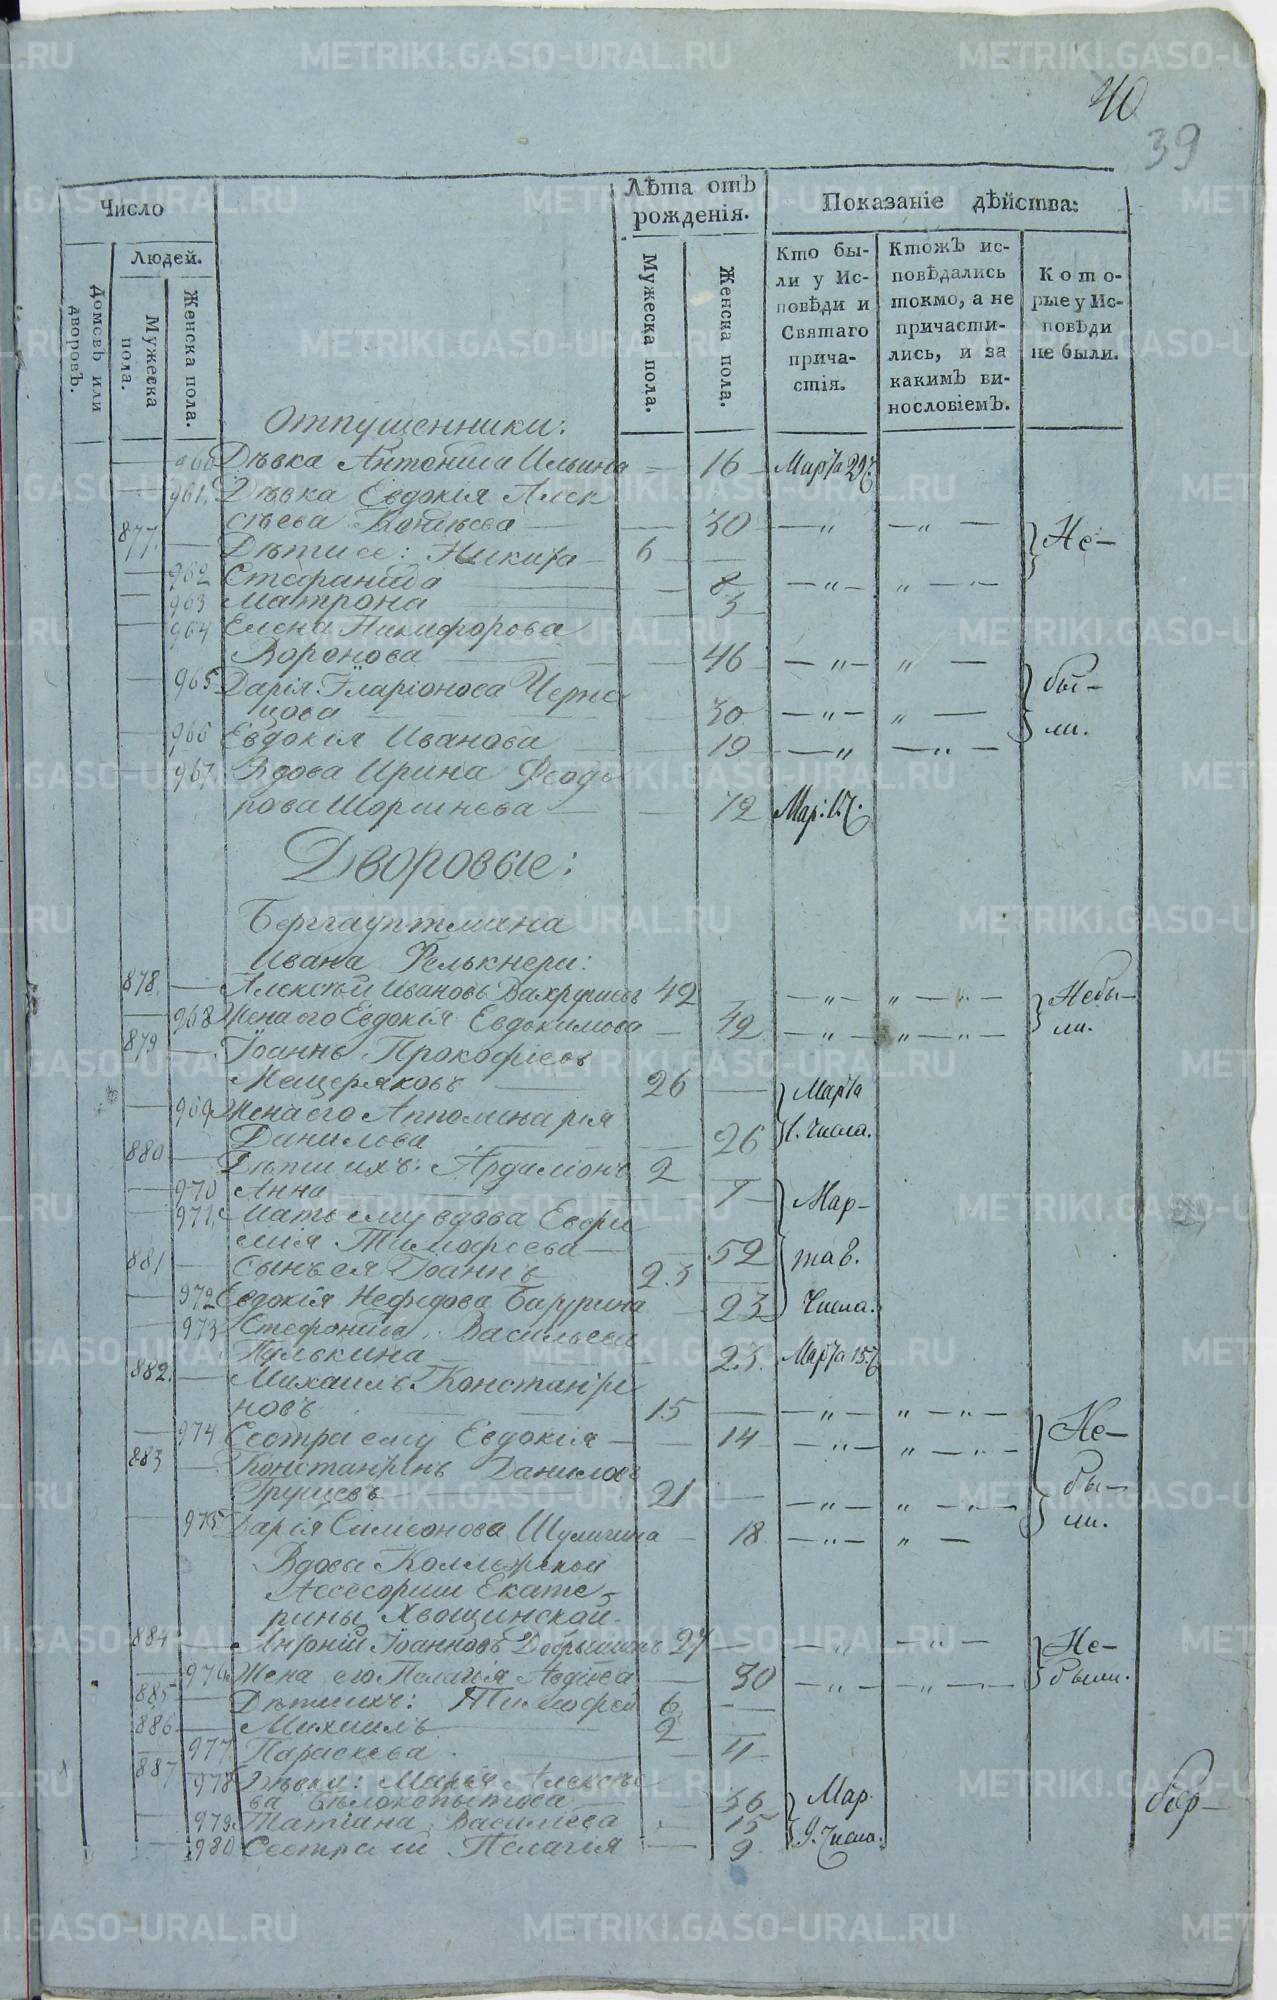 40
39
Число
Лѣта отъ рожденія.
Показаніе дѣйства:
Домовъ или дворовъ.
Людей.
Мужеска пола.
Женска пола.
Мужеска пола.
Женска пола.
Кто были у Исповѣди и Святаго причастія.
Ктожъ исповѣдались токмо, а не причастились, и за какимъ винословіемъ.
Которые у Исповѣди не были.
Отпущенники:
960 Дѣвка Антонида Ильина — 16 — Марта 29.
961. Дѣвка Евдокія Алек
сѣева — 30 — „ — „ —
877. Дѣти ее: Никита — 6 — Не-
962 Степанида — 8 — „ — „ — „ —
963 Матрона — 3
964 Елена Никифорова
Воронова — 46 — „ — „ —
965 Дарія Иларіонова Черне
цова — 30 — „ — „ — бы-
966 Евдокія Иванова — 19 — „ — „ — ли.
967 Вдова Ирина Феодо
рова Шоршнева — 72 Мар: 1.
Дворовые:
Бергауптмана
Ивана Фелькнера:
878. Алексѣй Ивановъ Вахрушевъ 42 — „ — „ — „ — Небы-
968 Жена его Евдокія Евдокимова — 42 — „ — „ — „ — ли.
879 Іоаннъ Прокофіевъ
Мещеряковъ — 26 — Марта
969 Жена его Апполинарія
Данилова — 26 1. числа.
880 Дѣти ихъ: Ардаліонъ 2
970 Анна — Мар-
971. Мать ему вдова Евфи
мія Тимофеева — 52 та 8.
881 Сынъ ея Іоаннъ 23
972 Евдокія Нефедова — 23 Числа.
973 Стефанида Васильева
Пулькина — 23. Марта 15.
882. Михаилъ Константи
новъ 15 — „ — „ — „ —
974 Сестра ему Евдокія — 14 — „ — „ — „ — Не-
883 Константинъ Даниловъ
Грущевъ 21 — „ — „ — „ — бы-
975 Дарія Симеонова Шулигина — 18 — „ — „ — ли.
Вдовы Коллежской
Асессорши Екате-
рины Хвощинской.
884 Антоній Іоанновъ Добрынинъ 27 — „ — „ — Не-
976 Жена его Пелагія Авдіева — 30 — „ — „ — „ — были.
885 Дѣти ихъ: Тимофей 6
886 Михаилъ 2
977 Параскева — 4
887
978 Дѣвки: Марія Алексѣе
ва Бѣлокопытова 36 Мар.
979 Татіана Васильева 15
980 Сестра ей Пелагія — 9. 9. Числа.
METRIKI.GASO-URAL.RU